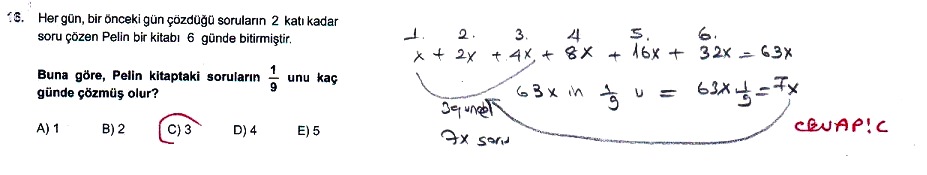 16. Her gün, bir önceki gün çözdüğü soruların 2 katı kadar
soru çözen Pelin bir kitabı 6 günde bitirmiştir.
Buna göre, Pelin kitaptaki soruların 1/9 unu kaç
günde çözmüş olur?
A) 1 B) 2 C) 3 D) 4 E) 5
1. 2. 3. 4 5. 6.
x + 2x + 4x + 8x + 16x + 32x = 63x
63x in 1/9 u = 63x 1/9 = 7x
7x soru
CEVAP: C